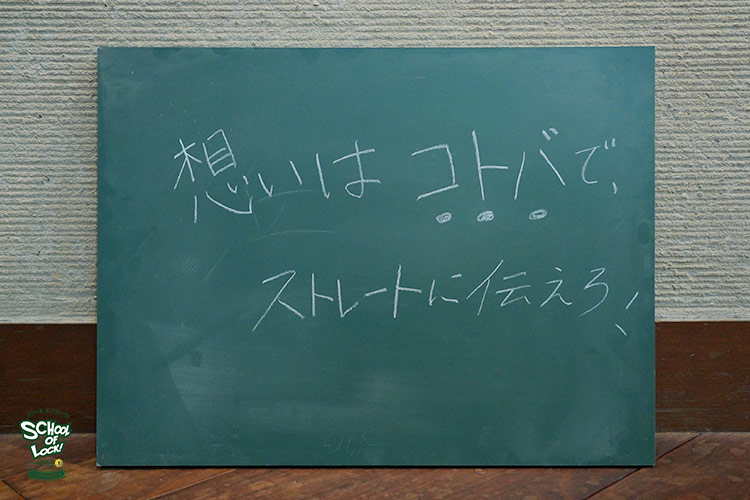 想いは コトバで、
ストレートに伝えろ！
SCHOOL
OF
LOCK!